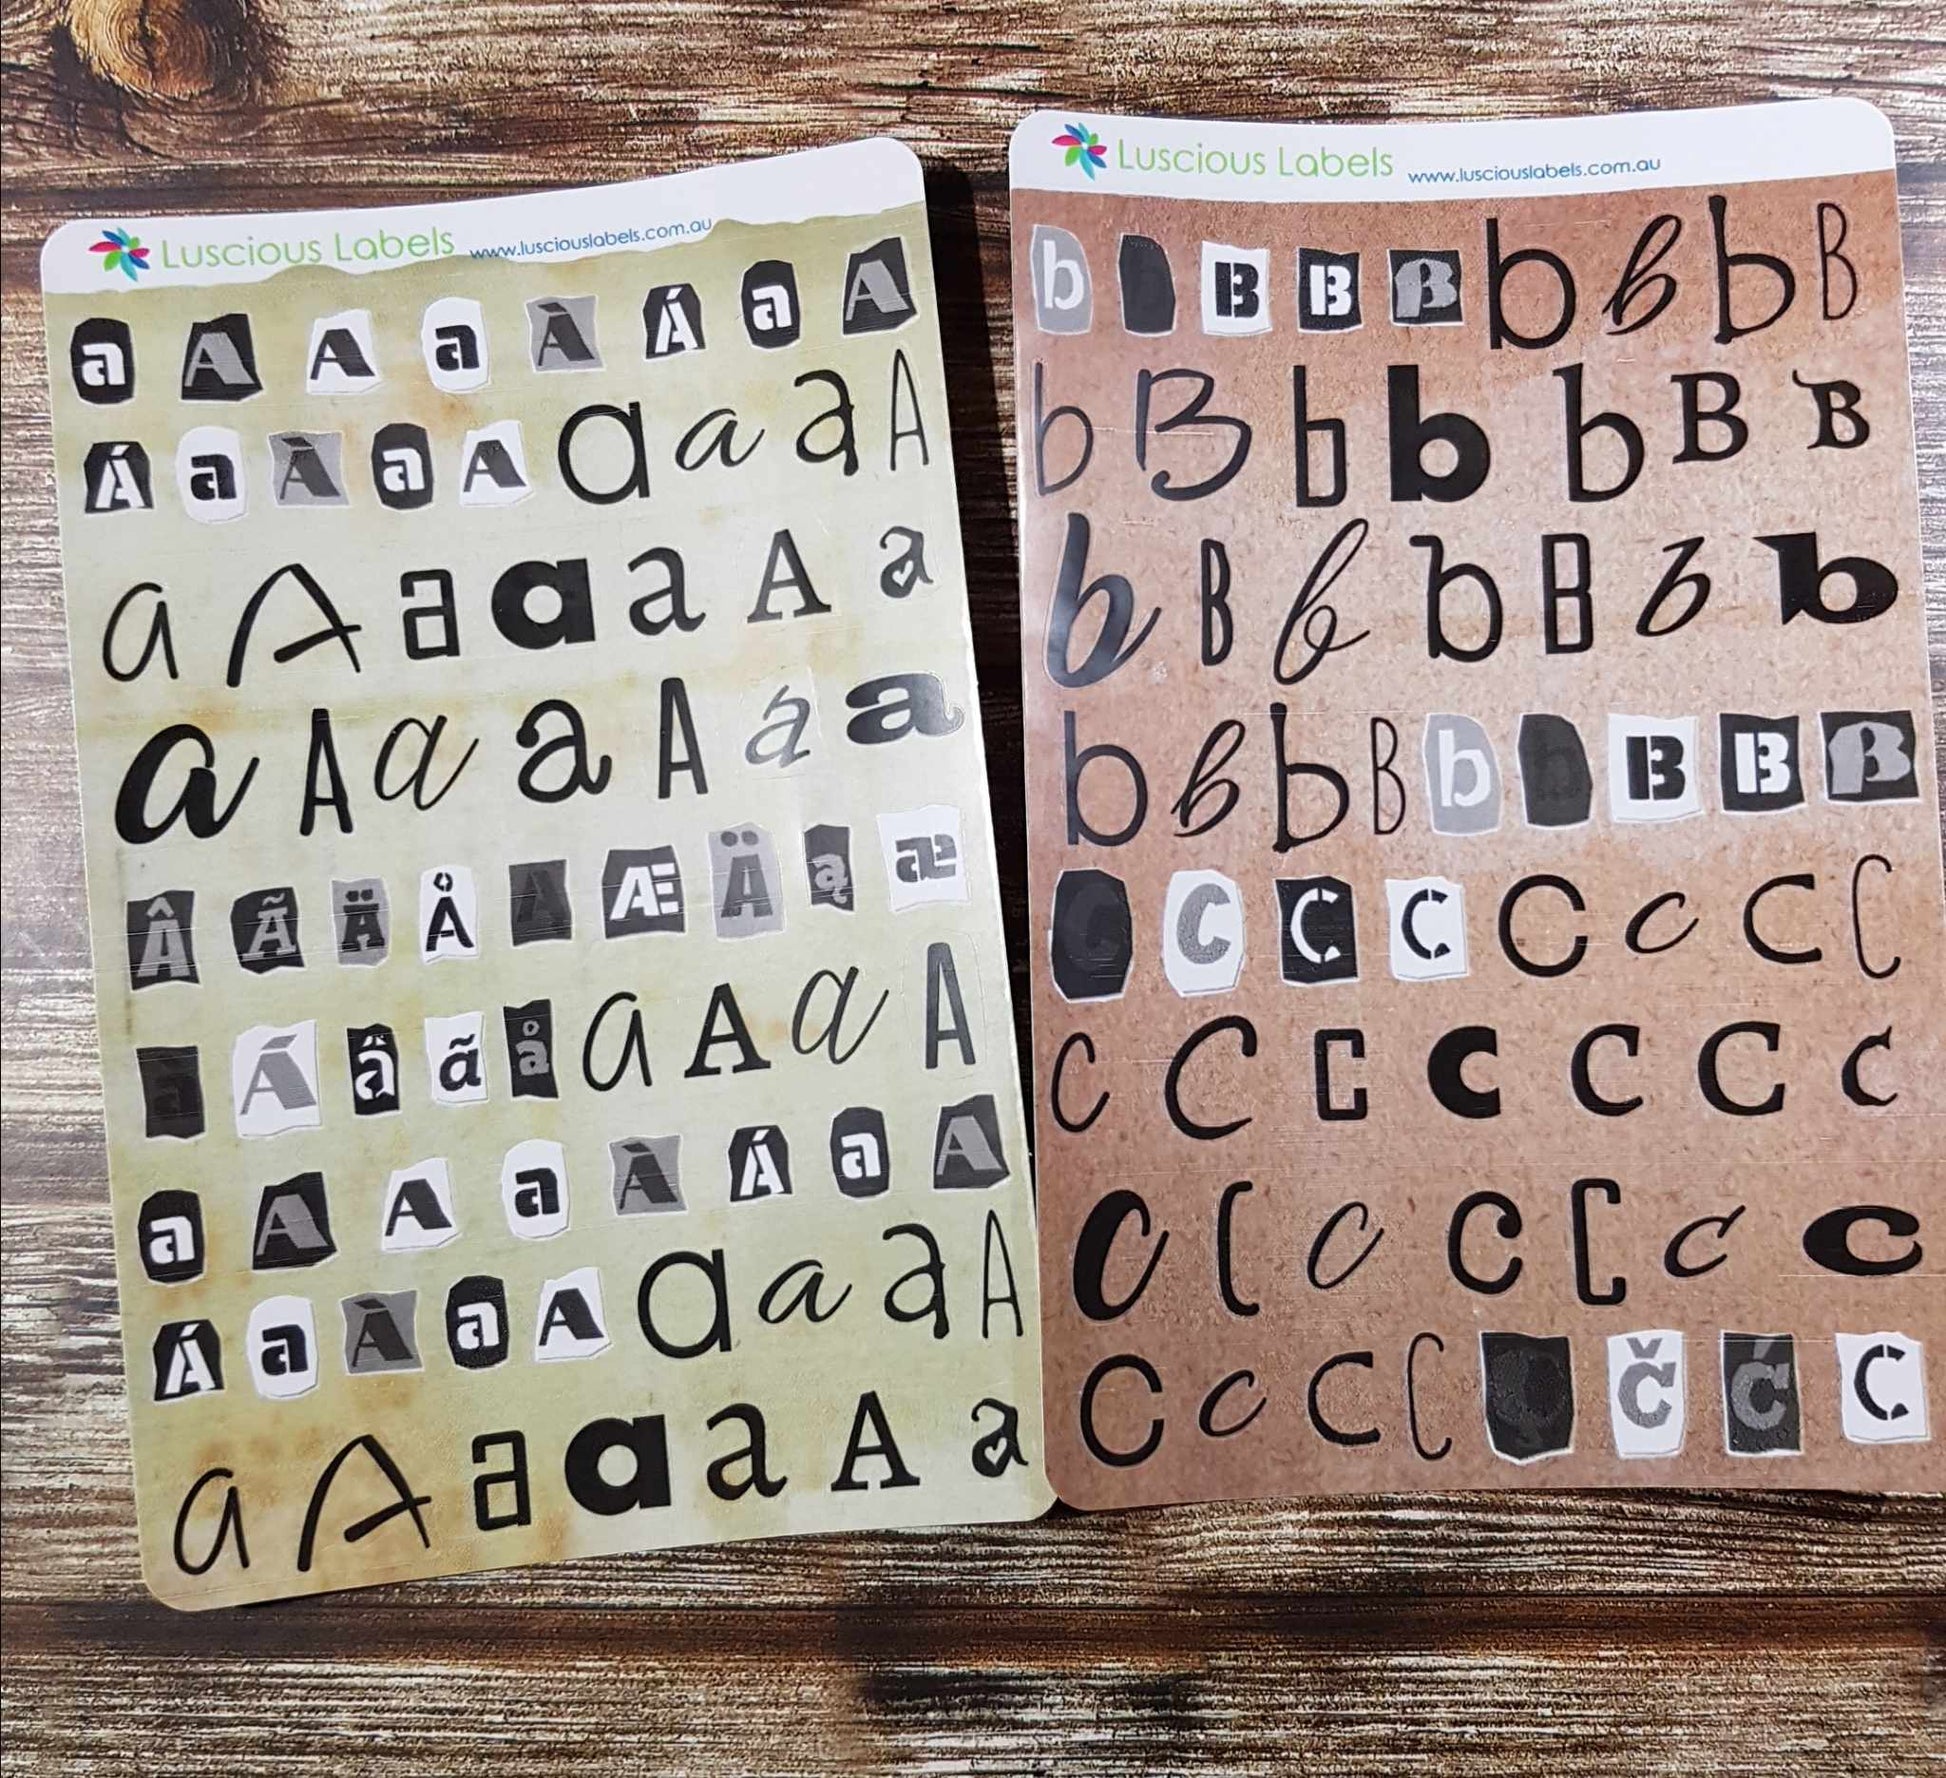 Luscious Labels www.lusciouslabels.com.au
a A A a À Á a A
Á a À a A a a a A
a A a a a A a
a A a a A a a
Â Ã Ä Å A Æ Ä ą æ
a Á â ã å a A a A
a A A a À Á a A
Á a À a A a a a A
a A a a a A a
Luscious Labels www.lusciouslabels.com.au
b B B B b b b B
b B b b b B B
b B b b B b b
b b b B b b B B B
C C C C c c c C
c C C c c C c
c C c c C c c
C c c C Č Ć C